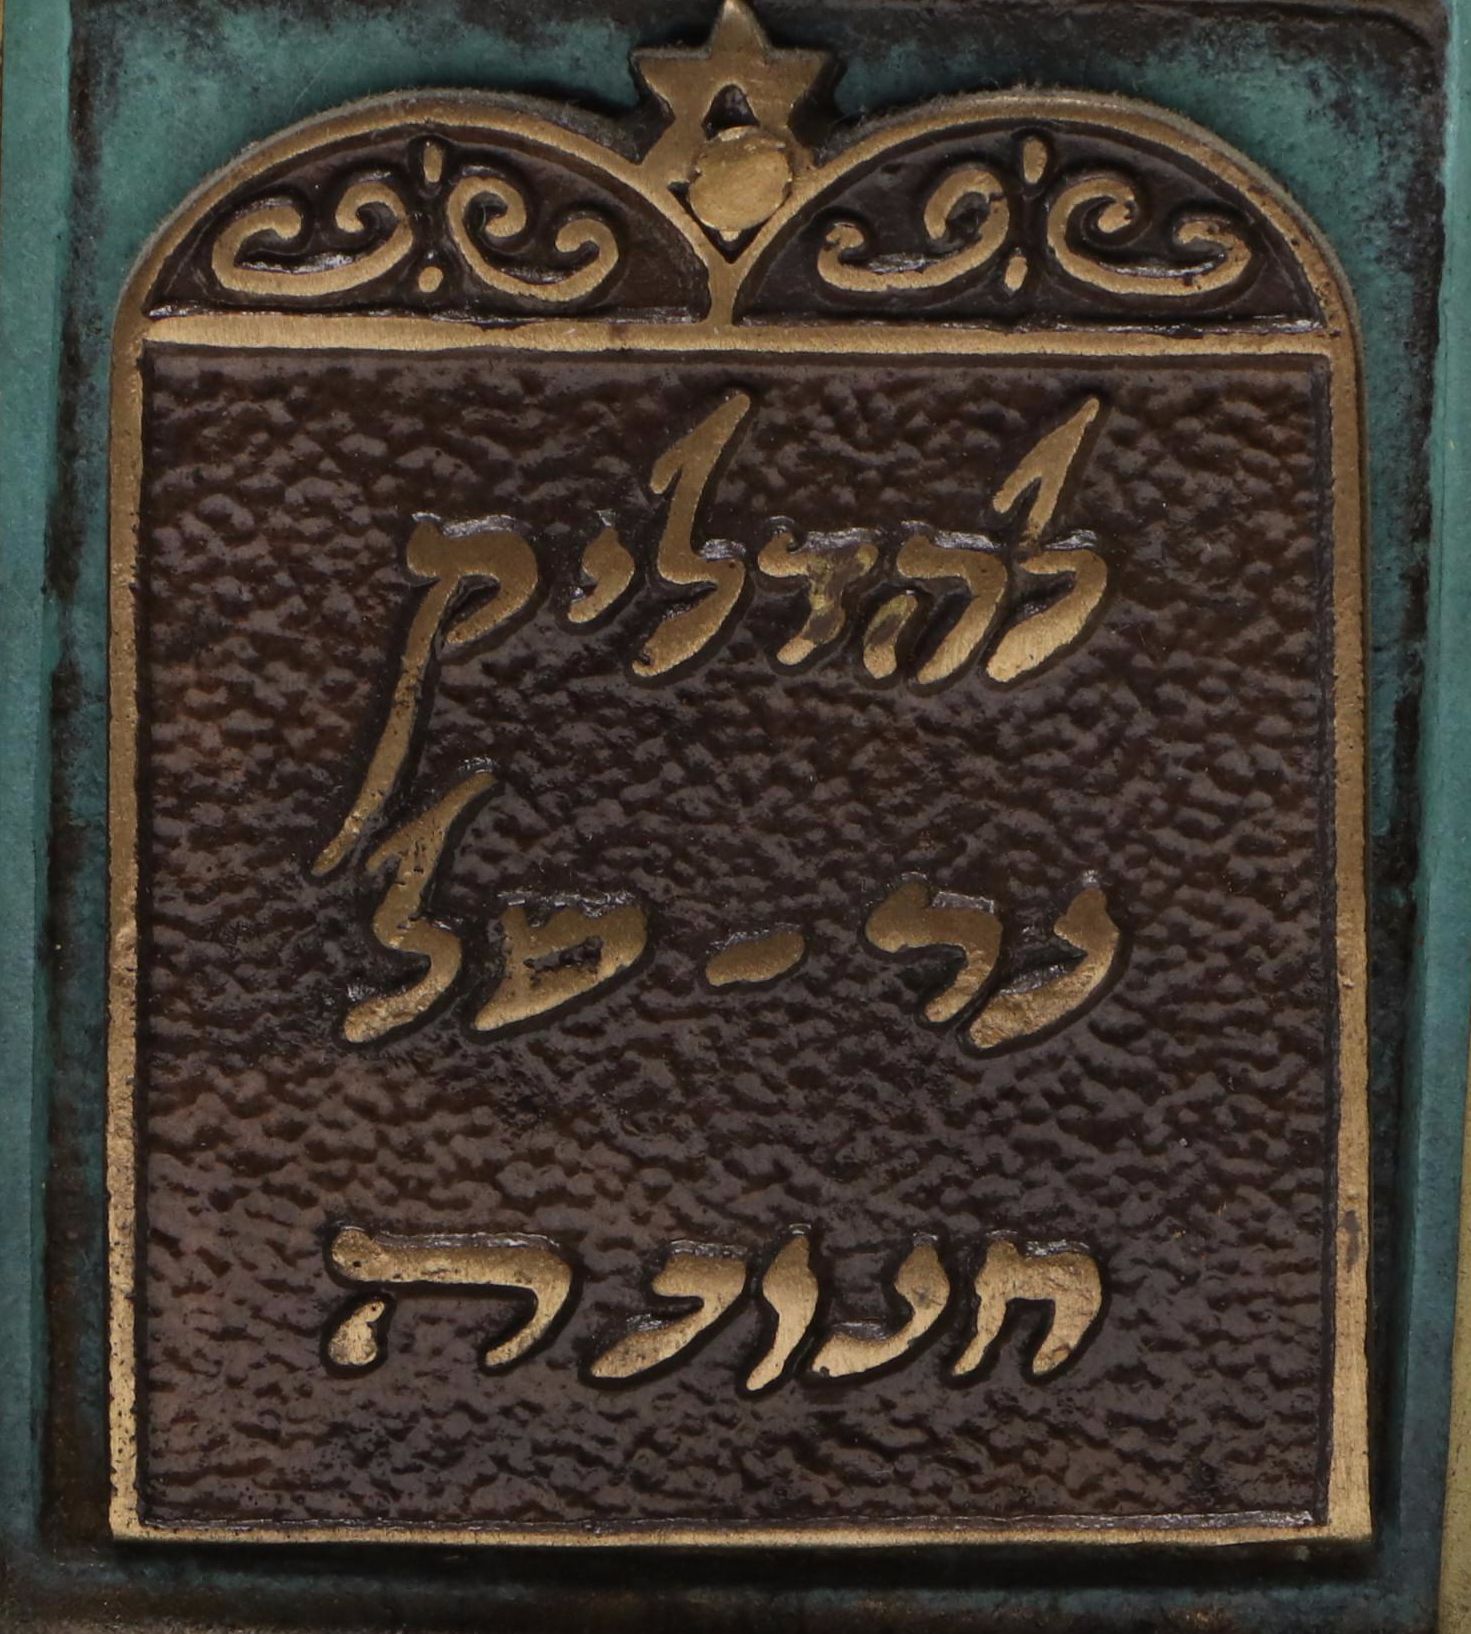 להדליק
נר - של
חנוכה